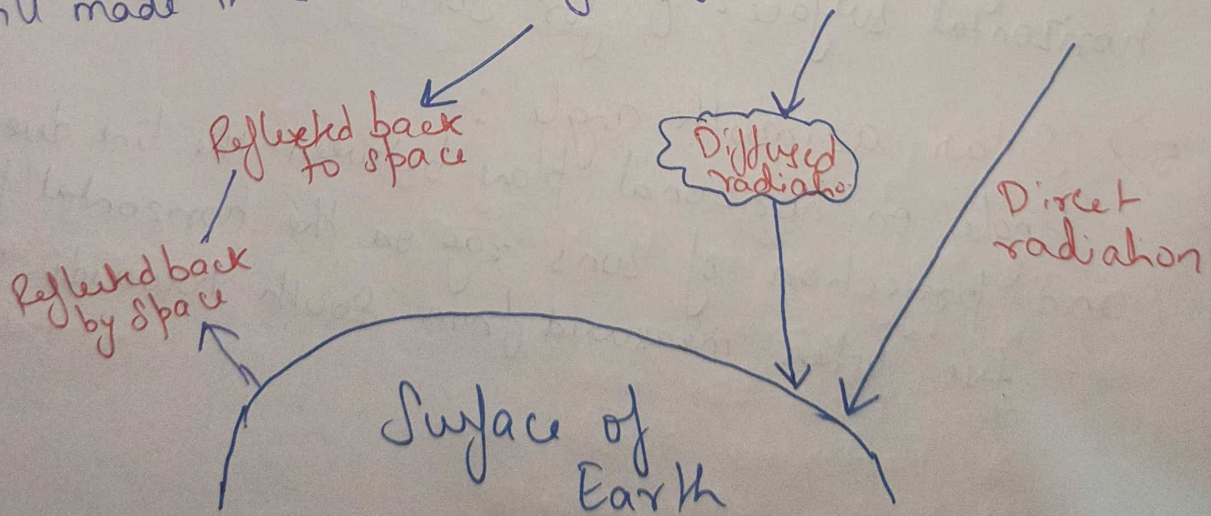 made
Reflected back
to space
Diffused
radiation
Direct
radiation
Reflected back
by space
Surface of
Earth